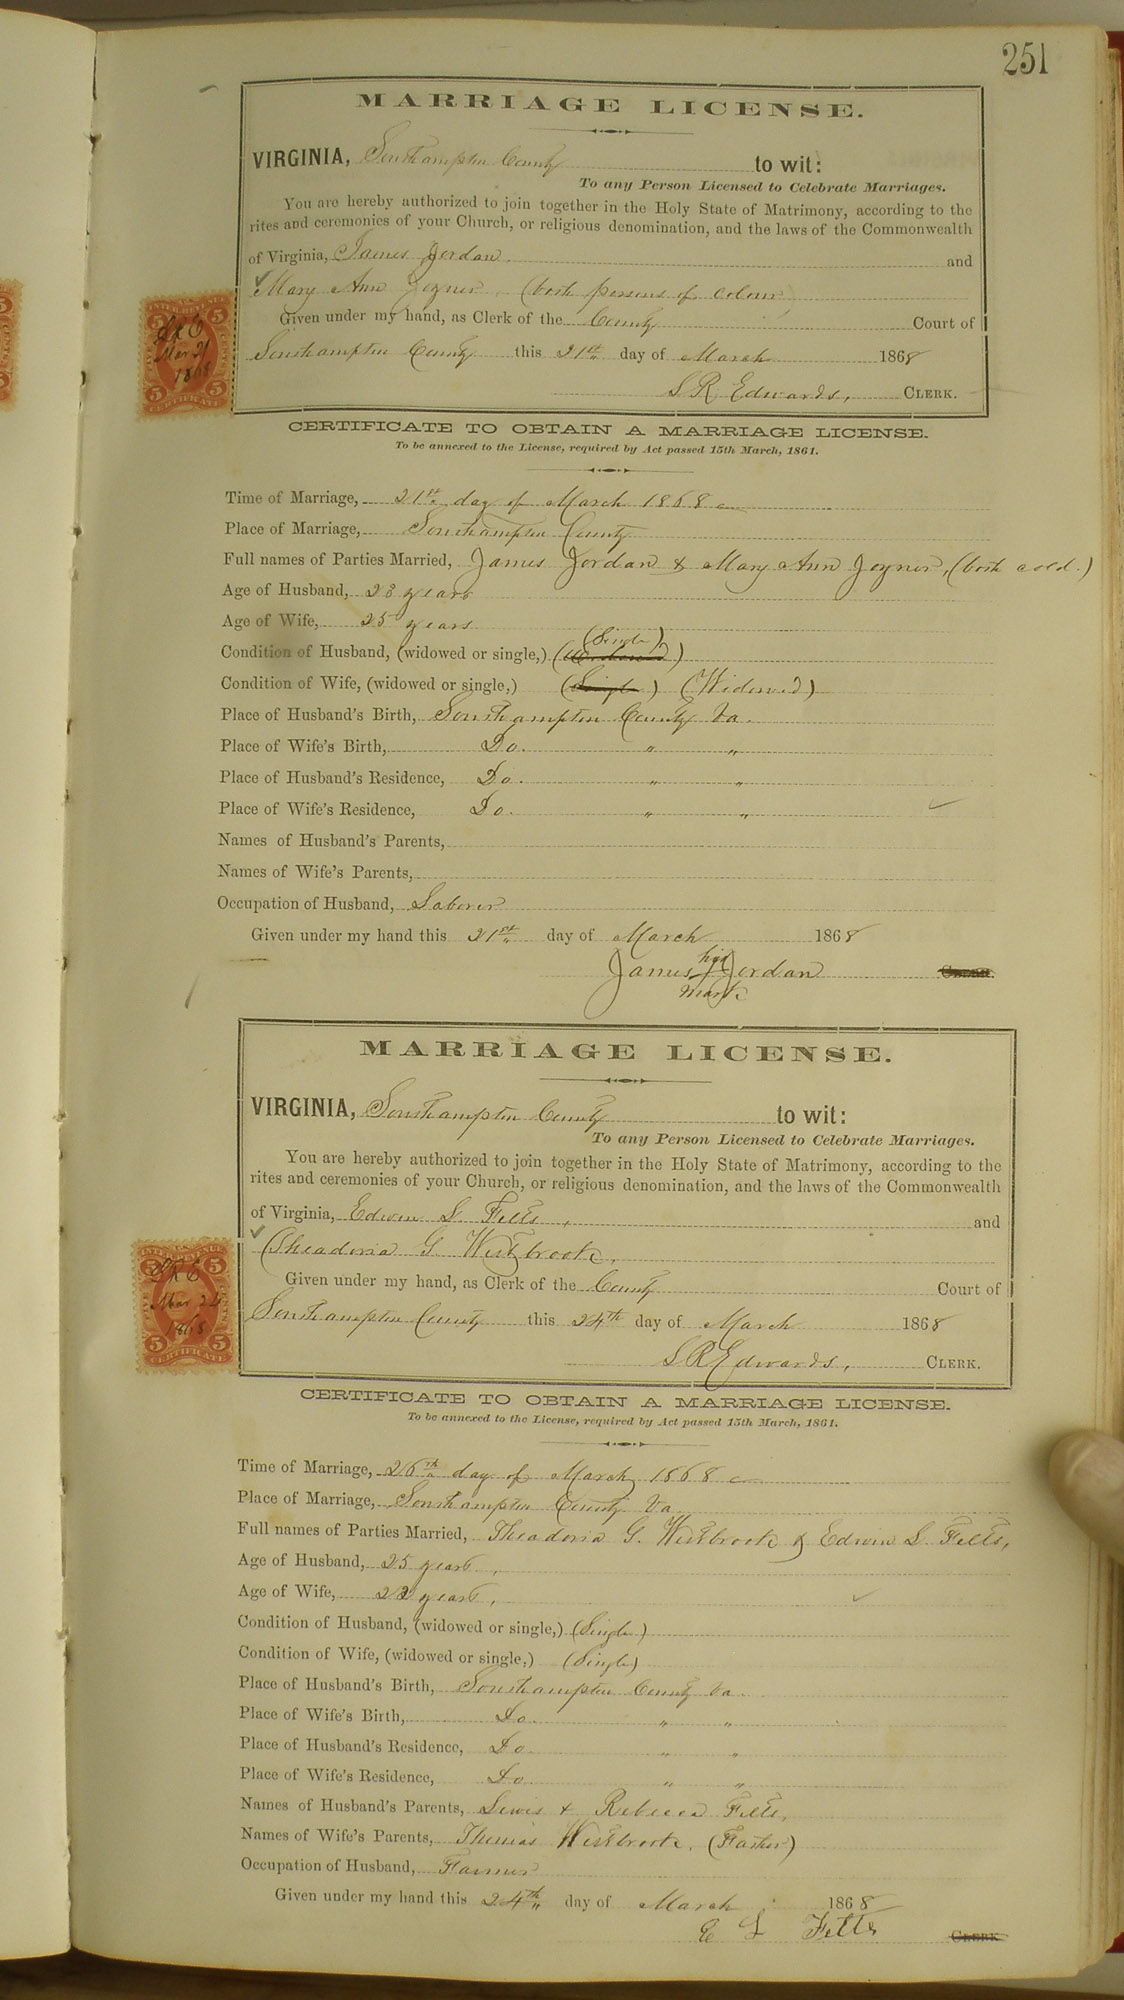 251
MARRIAGE LICENSE.
VIRGINIA, Southampton County to wit:
To any Person Licensed to Celebrate Marriages.
You are hereby authorized to join together in the Holy State of Matrimony, according to the
rites and ceremonies of your Church, or religious denomination, and the laws of the Commonwealth
of Virginia, James Jordan and
Mary Ann Joyner, (both persons of colour)
Given under my hand, as Clerk of the County Court of
Southampton County this 21st day of March 1868
S R Edwards, CLERK.
INTER. REVENUE
5 5
SRE
Mar 21
1868
FIVE CENTS
5 5
CERTIFICATE
CERTIFICATE TO OBTAIN A MARRIAGE LICENSE.
To be annexed to the License, required by Act passed 15th March, 1861.
Time of Marriage, 21st day of March 1868
Place of Marriage, Southampton County
Full names of Parties Married, James Jordan & Mary Ann Joyner, (both cold.)
Age of Husband, 23 years
Age of Wife, 25 years
Condition of Husband, (widowed or single,) (widowed) (Single)
Condition of Wife, (widowed or single,) (Single) (Widowed)
Place of Husband's Birth, Southampton County Va.
Place of Wife's Birth, Do. " "
Place of Husband's Residence, Do. " "
Place of Wife's Residence, Do. " "
Names of Husband's Parents,
Names of Wife's Parents,
Occupation of Husband, Laborer
Given under my hand this 21st day of March 1868
James his Jordan CLERK.
mark
MARRIAGE LICENSE.
VIRGINIA, Southampton County to wit:
To any Person Licensed to Celebrate Marriages.
You are hereby authorized to join together in the Holy State of Matrimony, according to the
rites and ceremonies of your Church, or religious denomination, and the laws of the Commonwealth
of Virginia, Edwin L Felts, and
Theadoria G. Westbrook,
Given under my hand, as Clerk of the County Court of
Southampton County this 24th day of March 1868
S R Edwards, CLERK.
INTER. REVENUE
5 5
SRE
Mar 24
1868
FIVE CENTS
5 5
CERTIFICATE
CERTIFICATE TO OBTAIN A MARRIAGE LICENSE.
To be annexed to the License, required by Act passed 15th March, 1861.
Time of Marriage, 26th day of March 1868
Place of Marriage, Southampton County Va.
Full names of Parties Married, Theadoria G. Westbrook & Edwin L. Felts,
Age of Husband, 25 years,
Age of Wife, years,
Condition of Husband, (widowed or single,) (Single)
Condition of Wife, (widowed or single,) (Single)
Place of Husband's Birth, Southampton County Va.
Place of Wife's Birth, Do. " "
Place of Husband's Residence, Do. " "
Place of Wife's Residence, Do. " "
Names of Husband's Parents, Lewis & Rebecca Felts,
Names of Wife's Parents, Thomas Westbrook, (Father)
Occupation of Husband, Farmer
Given under my hand this 24th day of March 1868
E L Felts CLERK